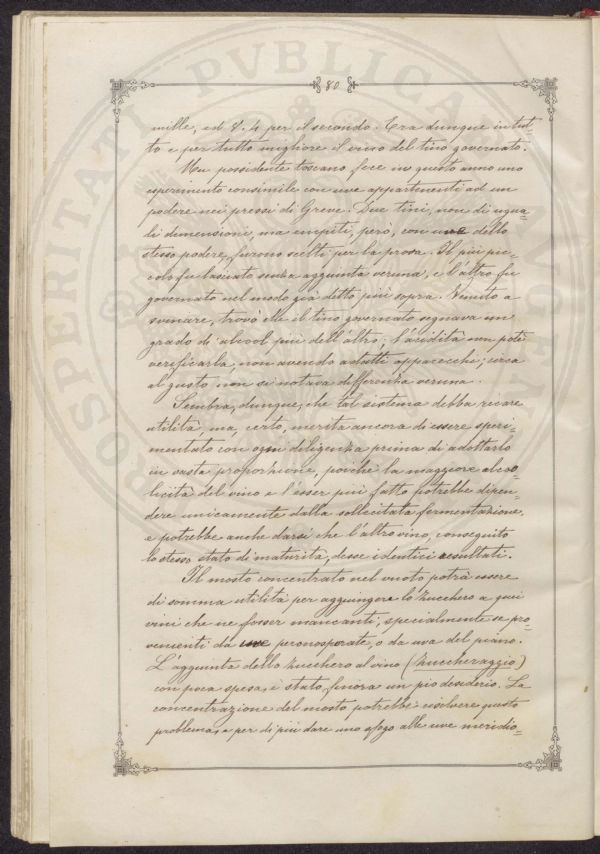 80.
mille, ed 8.4 per il secondo. Era dunque in tut-
to e per tutto migliore il vino del tino governato.
Un possidente toscano fece in questo anno uno
esperimento consimile con uve appartenenti ad un
podere nei pressi di Greve. Due tini, non di ugua-
li dimensioni, ma empiti, però, con uve dello
stesso podere, furono scelti per la prova. Il più pic-
colo fu lasciato senza aggiunta veruna, e l'altro fu
governato nel modo già detto più sopra. Venuto a
svinare, trovò che il tino governato segnava un
grado di alcool più dell'altro; l'acidità non potè
verificarla, non avendo adatti apparecchi; circa
al gusto non si notava differenza veruna.
Sembra, dunque, che tal sistema debba recare
utilità, ma, certo, merita ancora di essere speri-
mentato con ogni diligenza prima di adottarlo
in vasta proporzione, poichè la maggiore alcoo-
licità del vino e l'esser più fatto potrebbe dipen-
dere unicamente dalla sollecitata fermentazione,
e potrebbe anche darsi che l'altro vino, conseguito
lo stesso stato di maturità, desse identici resultati.
Il mosto concentrato nel vuoto potrà essere
di somma utilità per aggiungere lo zucchero a quei
vini che ne fosser mancanti, specialmente se pro-
venienti da uve peronosporate, o da uva del piano.
L'aggiunta dello zucchero al vino (Zuccheraggio)
con poca spesa, è stato finora un pio desiderio. La
concentrazione del mosto potrebbe risolvere questo
problema, e per di più dare uno sfogo alle uve meridio-
PVBLICA